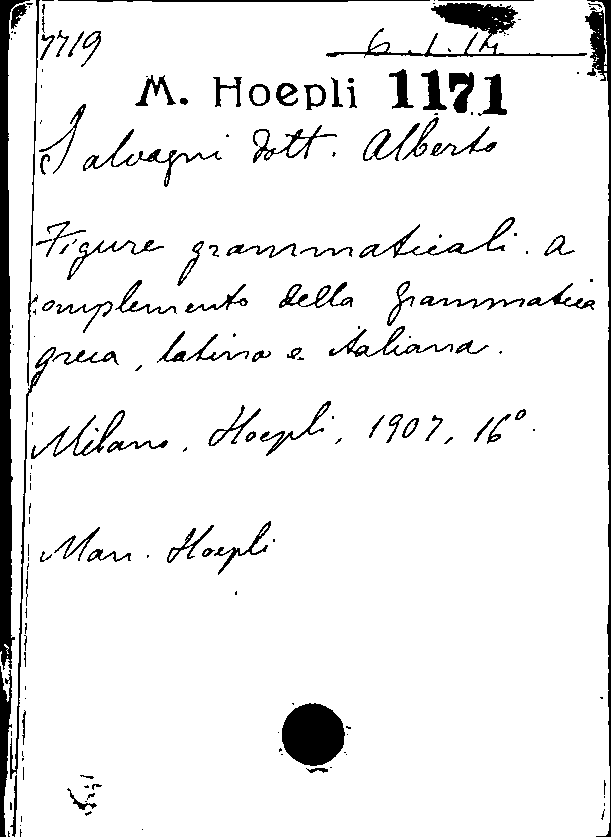 7719 6.1.14
M. Hoepli 1171
Salvagni dott. Alberto
Figure grammaticali. a
complemento della grammatica
greca, latina e italiana.
Milano, Hoepli, 1907, 16°.
Man. Hoepli